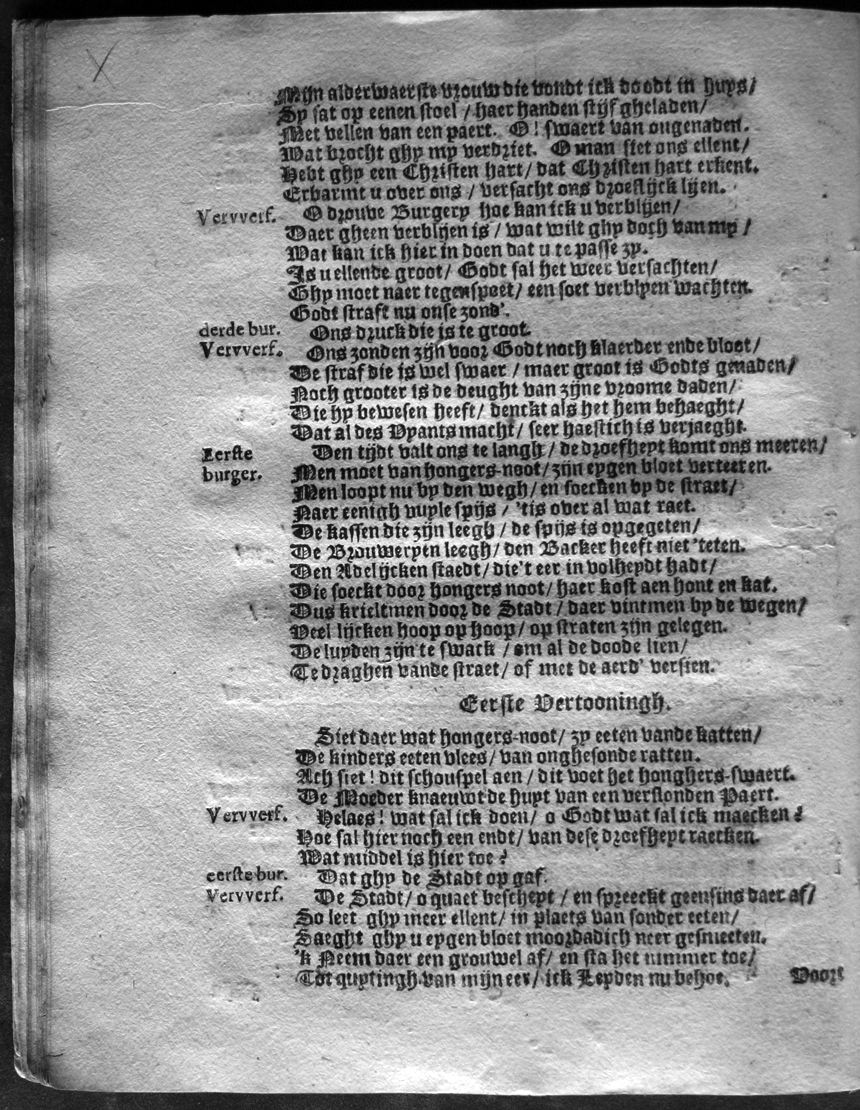 X
Mijn alderwaerste vrouw die vondt ick doodt in huys/
Sy sat op eenen stoel / haer handen stijf gheladen/
Met vellen van een paert. O! swaert van ongenaden.
Wat brocht ghy my verdriet. O man siet ons ellent/
Hebt ghy een Christen hart/ dat Christen hart erkent.
Erbarmt u over ons / versacht ons droeflijck lijen.
Vervverf. O drouve Burgery hoe kan ick u verblijen/
Daer gheen verblijen is / wat wilt ghy doch van my /
Wat kan ick hier in doen dat u te passe zy.
Is u ellende groot/ Godt sal het weer versachten/
Ghy moet naer tegenspoet/ een soet verblyen wachten.
Godt straft nu onse zond'.
derde bur. Ons druck die is te groot.
Vervverf. Ons zonden zijn voor Godt noch klaerder ende bloot/
De straf die is wel swaer / maer groot is Godts genaden/
Noch grooter is de deught van zijne vroome daden/
Die hy bewesen heeft/ denckt als het hem behaeght/
Dat al des Vyants macht/ seer haestich is verjaeght.
Eerste Den tijdt valt ons te langh / de droefheyt komt ons meeren/
burger. Men moet van hongers-noot/ zijn eygen bloet verteeren.
Men loopt nu by den wegh/ en soecken by de straet/
Naer eenigh vuyle spijs / 'tis over al wat raet.
De kassen die zijn leegh / de spijs is opgegeten/
De Brouweryen leegh/ den Backer heeft niet 'teten.
Den Adelijcken staedt/ die't eer in volheydt hadt/
Die soeckt door hongers noot/ haer kost aen hont en kat.
Dus krieltmen door de Stadt / daer vintmen by de wegen/
Veel lijcken hoop op hoop/ op straten zijn gelegen.
De luyden zijn te swack / om al de doode lien/
Te draghen vande straet/ of met de aerd' versien.
Eerste Vertooningh.
Siet daer wat hongers-noot/ zy eeten vande katten/
De kinders eeten vlees/ van onghesonde ratten.
Ach siet! dit schouspel aen / dit voet het honghers-swaert.
De Moeder knaeuwt de huyt van een verslonden Paert.
Vervverf. Helaes! wat sal ick doen/ o Godt wat sal ick maecken?
Hoe sal hier noch een endt/ van dese droefheyt raecken.
Wat middel is hier toe?
eerste bur. Dat ghy de Stadt op gaf.
Vervverf. De Stadt/ o quaet bescheyt / en spreeckt geensins daer af/
So leet ghy meer ellent/ in plaets van sonder eeten/
Saeght ghy u eygen bloet moordadich neer gesmeeten.
'k Neem daer een grouwel af/ en sta het nimmer toe/
Tot quytingh van mijn eer/ ick Leyden nu behoe. Voort